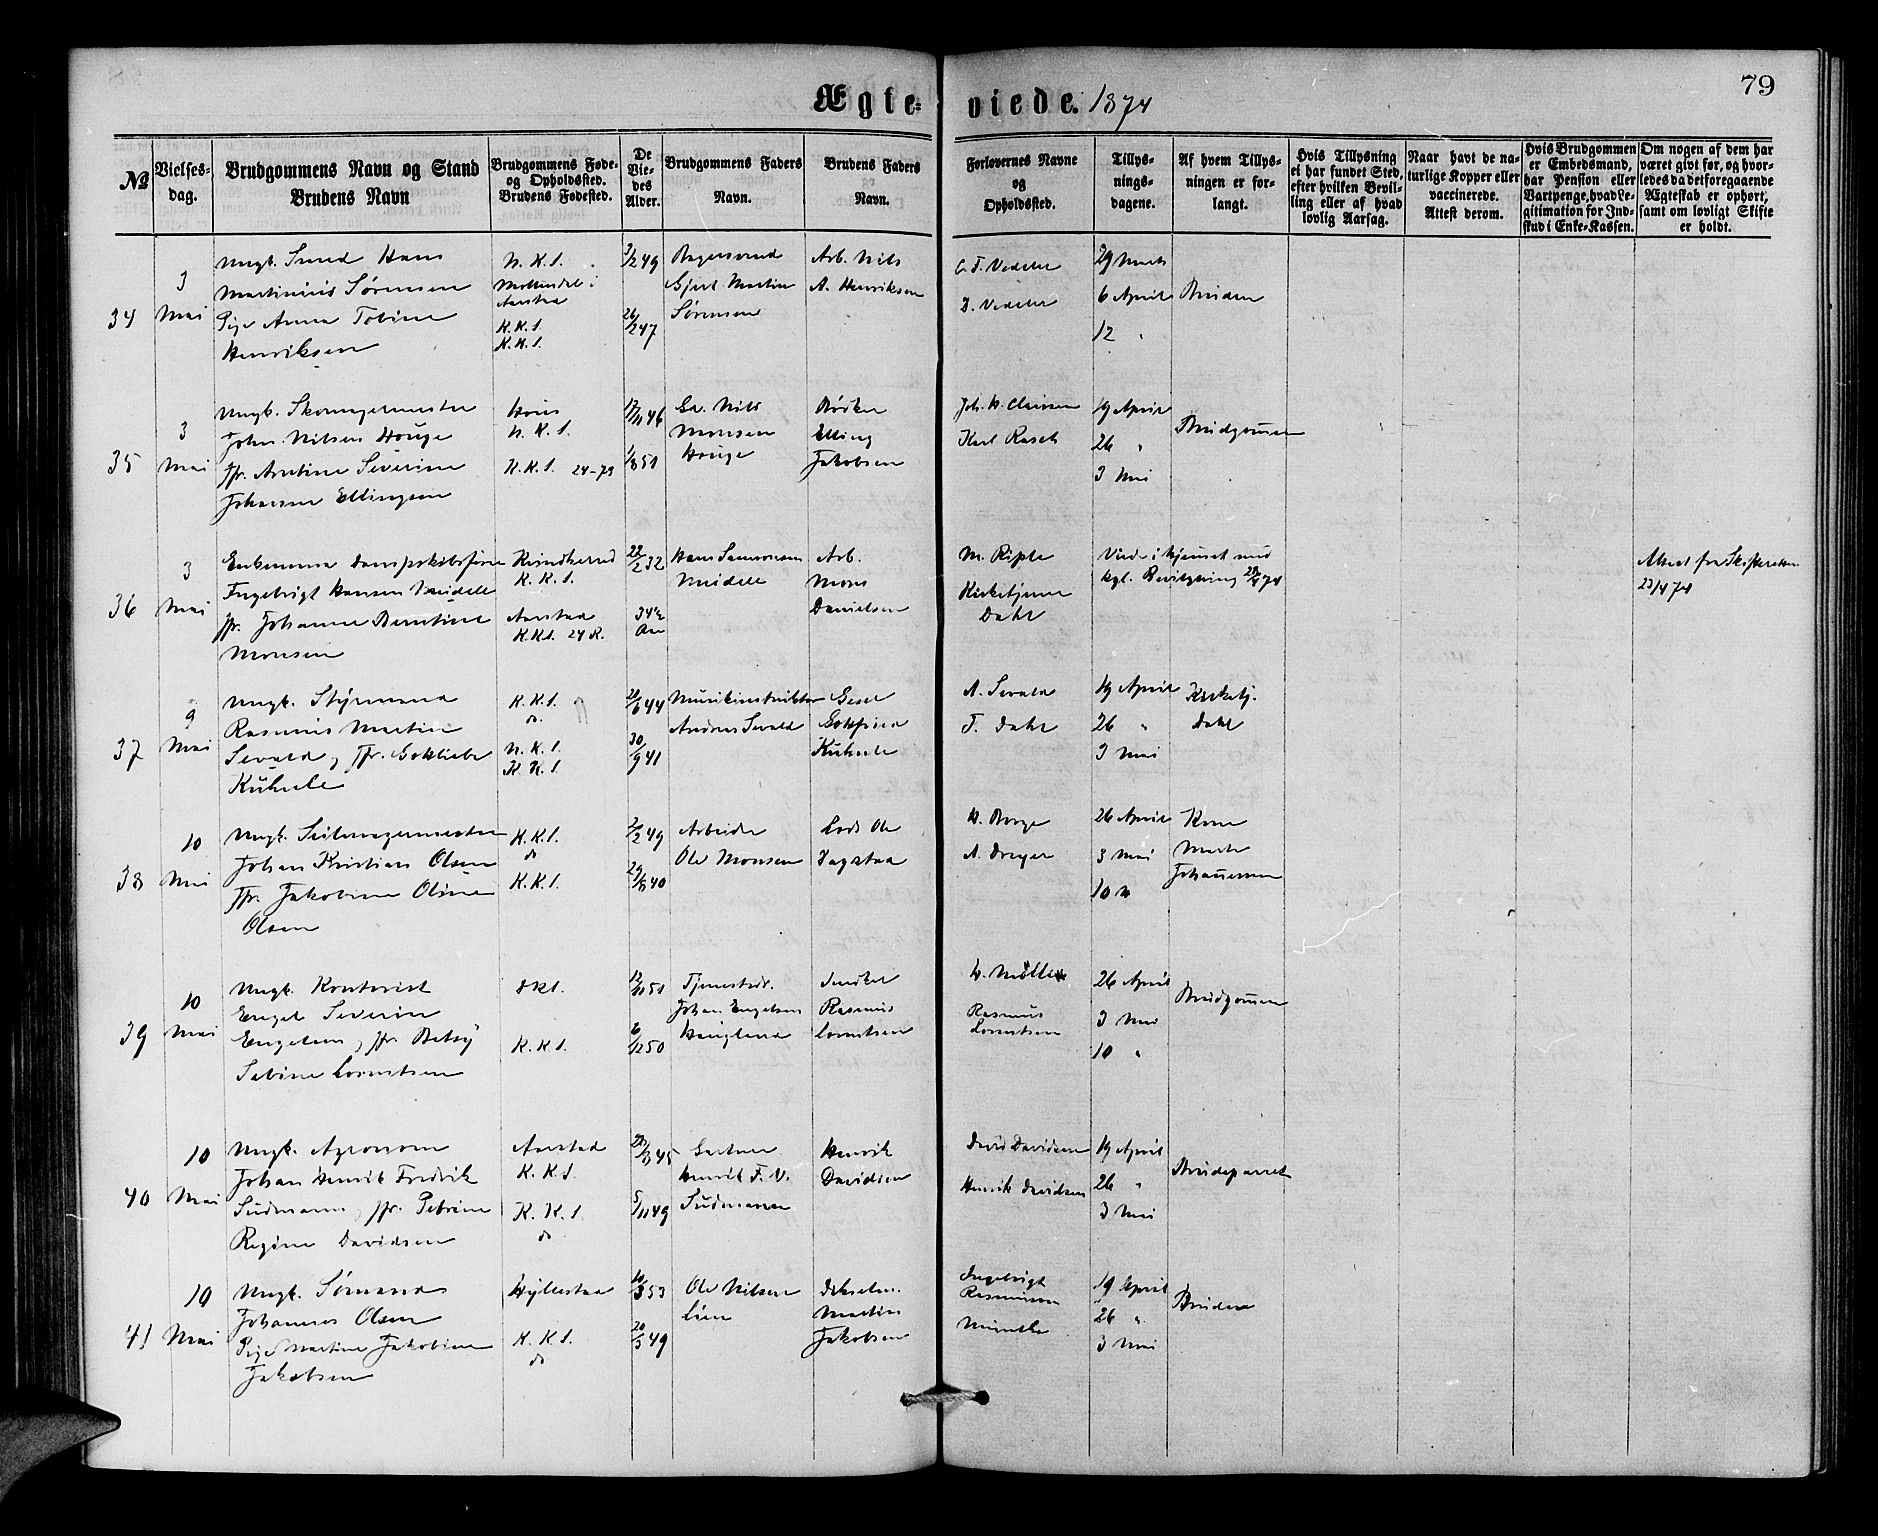 79
Ægte- viede. 1874
№
Vielses-
dag.
Brudgommens Navn og Stand
Brudens Navn
Brudgommens Føde-
og Opholdssted.
Brudens Fødested.
De
Vie-
des
Alder.
Brudgommens Faders
Navn.
Brudens Faders
Navn.
Forlovernes Navne
og
Opholdssted.
Tillys-
nings-
dagene.
Af hvem Tillys-
ningen er for-
langt.
Hvis Tillysning
ei har fundet Sted,
efter hvilken Bevil-
ling eller af hvad
lovlig Aarsag.
Naar havt de na-
turlige Kopper eller
vaccinerede.
Attest derom.
Hvis Brudgommen
er Embedsmand,
har Pension eller
Vartpenge, hvad Le-
gitimation for Ind-
skud i Enke-Kassen.
Om nogen af dem har
været gift før, og hvor-
ledes da det foregaaende
Ægteskab er ophørt,
samt om lovligt Skifte
er holdt.
34
3
Mai
Ungk. Smed Hans
Martinius Sørensen
Pige Anna Tobine
Henriksen
N. K. S.
Møllendal i
Aarstad
K. K. S.
K. K. S.
26/2 47
Gjert Martin
Sørensen
Arb. Nils
A. Henriksen
C. F. Vedeler
D. Vedeler
29 Marts
6 April
12 "
Bruden
35
3
Mai
Ungk. Skomagermester
Johan Nilsen Houge
Jfr. Arntine Severine
Johanna Ellingsen
Hous
N. K. S.
K. K. S. 24-73
17/11 46
1/8 51
Ga. Nils
Monsen
Houge
Bødker
Elling
Jakobsen
Joh. H. Clausen
Karl Rasch
19 April
26 "
3 Mai
Brudgommen
36
3
Mai
Enkemand Dampskibsfører
Ingebrigt Hansen
Jfr. Johanne Berntine
Monsen
Kvindherred
K. K. S.
Aarstad
K. K. S. 24 R.
22/2 32
34½
Aar
Hans Samsonsen
Arb.
Mons
Danielsen
M. Riple
Kirketjener
Dahl
Viede i Hjemmet med
kgl. Bevilgning 28/4 74
Attest fra Skifteretten
23/4 74
37
9
Mai
Ungk. Styrmand
Rasmus Martin
Sevald, Jfr. Gotliebe
Kuhnle
K. K. S.
do.
N. K. S.
K. K. S.
21/6 44
30/9 41
Musikinstruktør
Andreas Sevald
Gesel
Gotfried
Kuhnle
A. Sevald
F. Dahl
19 April
26 "
3 Mai
Kirketj.
Dahl
38
10
Mai
Ungk. Seilmagermester
Johan Kristian Olsen
Jfr. Jakobine Oline
Olsen
K. K. S.
do
K. K. S.
2/2 49
Arbeider
Ole Monsen
Lods Ole
H. Borge
A. Dreyer
26 April
3 Mai
10 "
Kone
Marte
Johannesen
39
10
Mai
Ungk. Kontorist
Engel Severin
Engelsen, Jfr. Betsy
Sabine Lorentsen
K. K. S.
12/11 51
6/12 50
Johan Engelsen
Haugland
Snedker
Rasmus
Lorentsen
Rasmus
Lorentsen
26 April
3 Mai
10 "
Brudgommen
40
10
Mai
Ungk. Agronom
Johan Henrik Fredrik
Sudmann, Jfr. Petrine
Regine Davidsen
Aarstad
K. K. S.
K. K. S.
do
5/11 49
Gartner
Henrik F. V.
Sudmann
Henrik
Davidsen
David Davidsen
Henrik Davidsen
19 April
26 "
3 Mai
Brudeparret
41
10
Mai
Ungk. Sømand
Johannes Olsen
Pige Martine Jakobine
Jakobsen
Hyllestad
K. K. S.
do
20/3 49
Ole Nilsen
Martin
Jakobsen
Ingebrigt
Rasmussen
Minuthe
19 April
26 "
3 Mai
Bruden